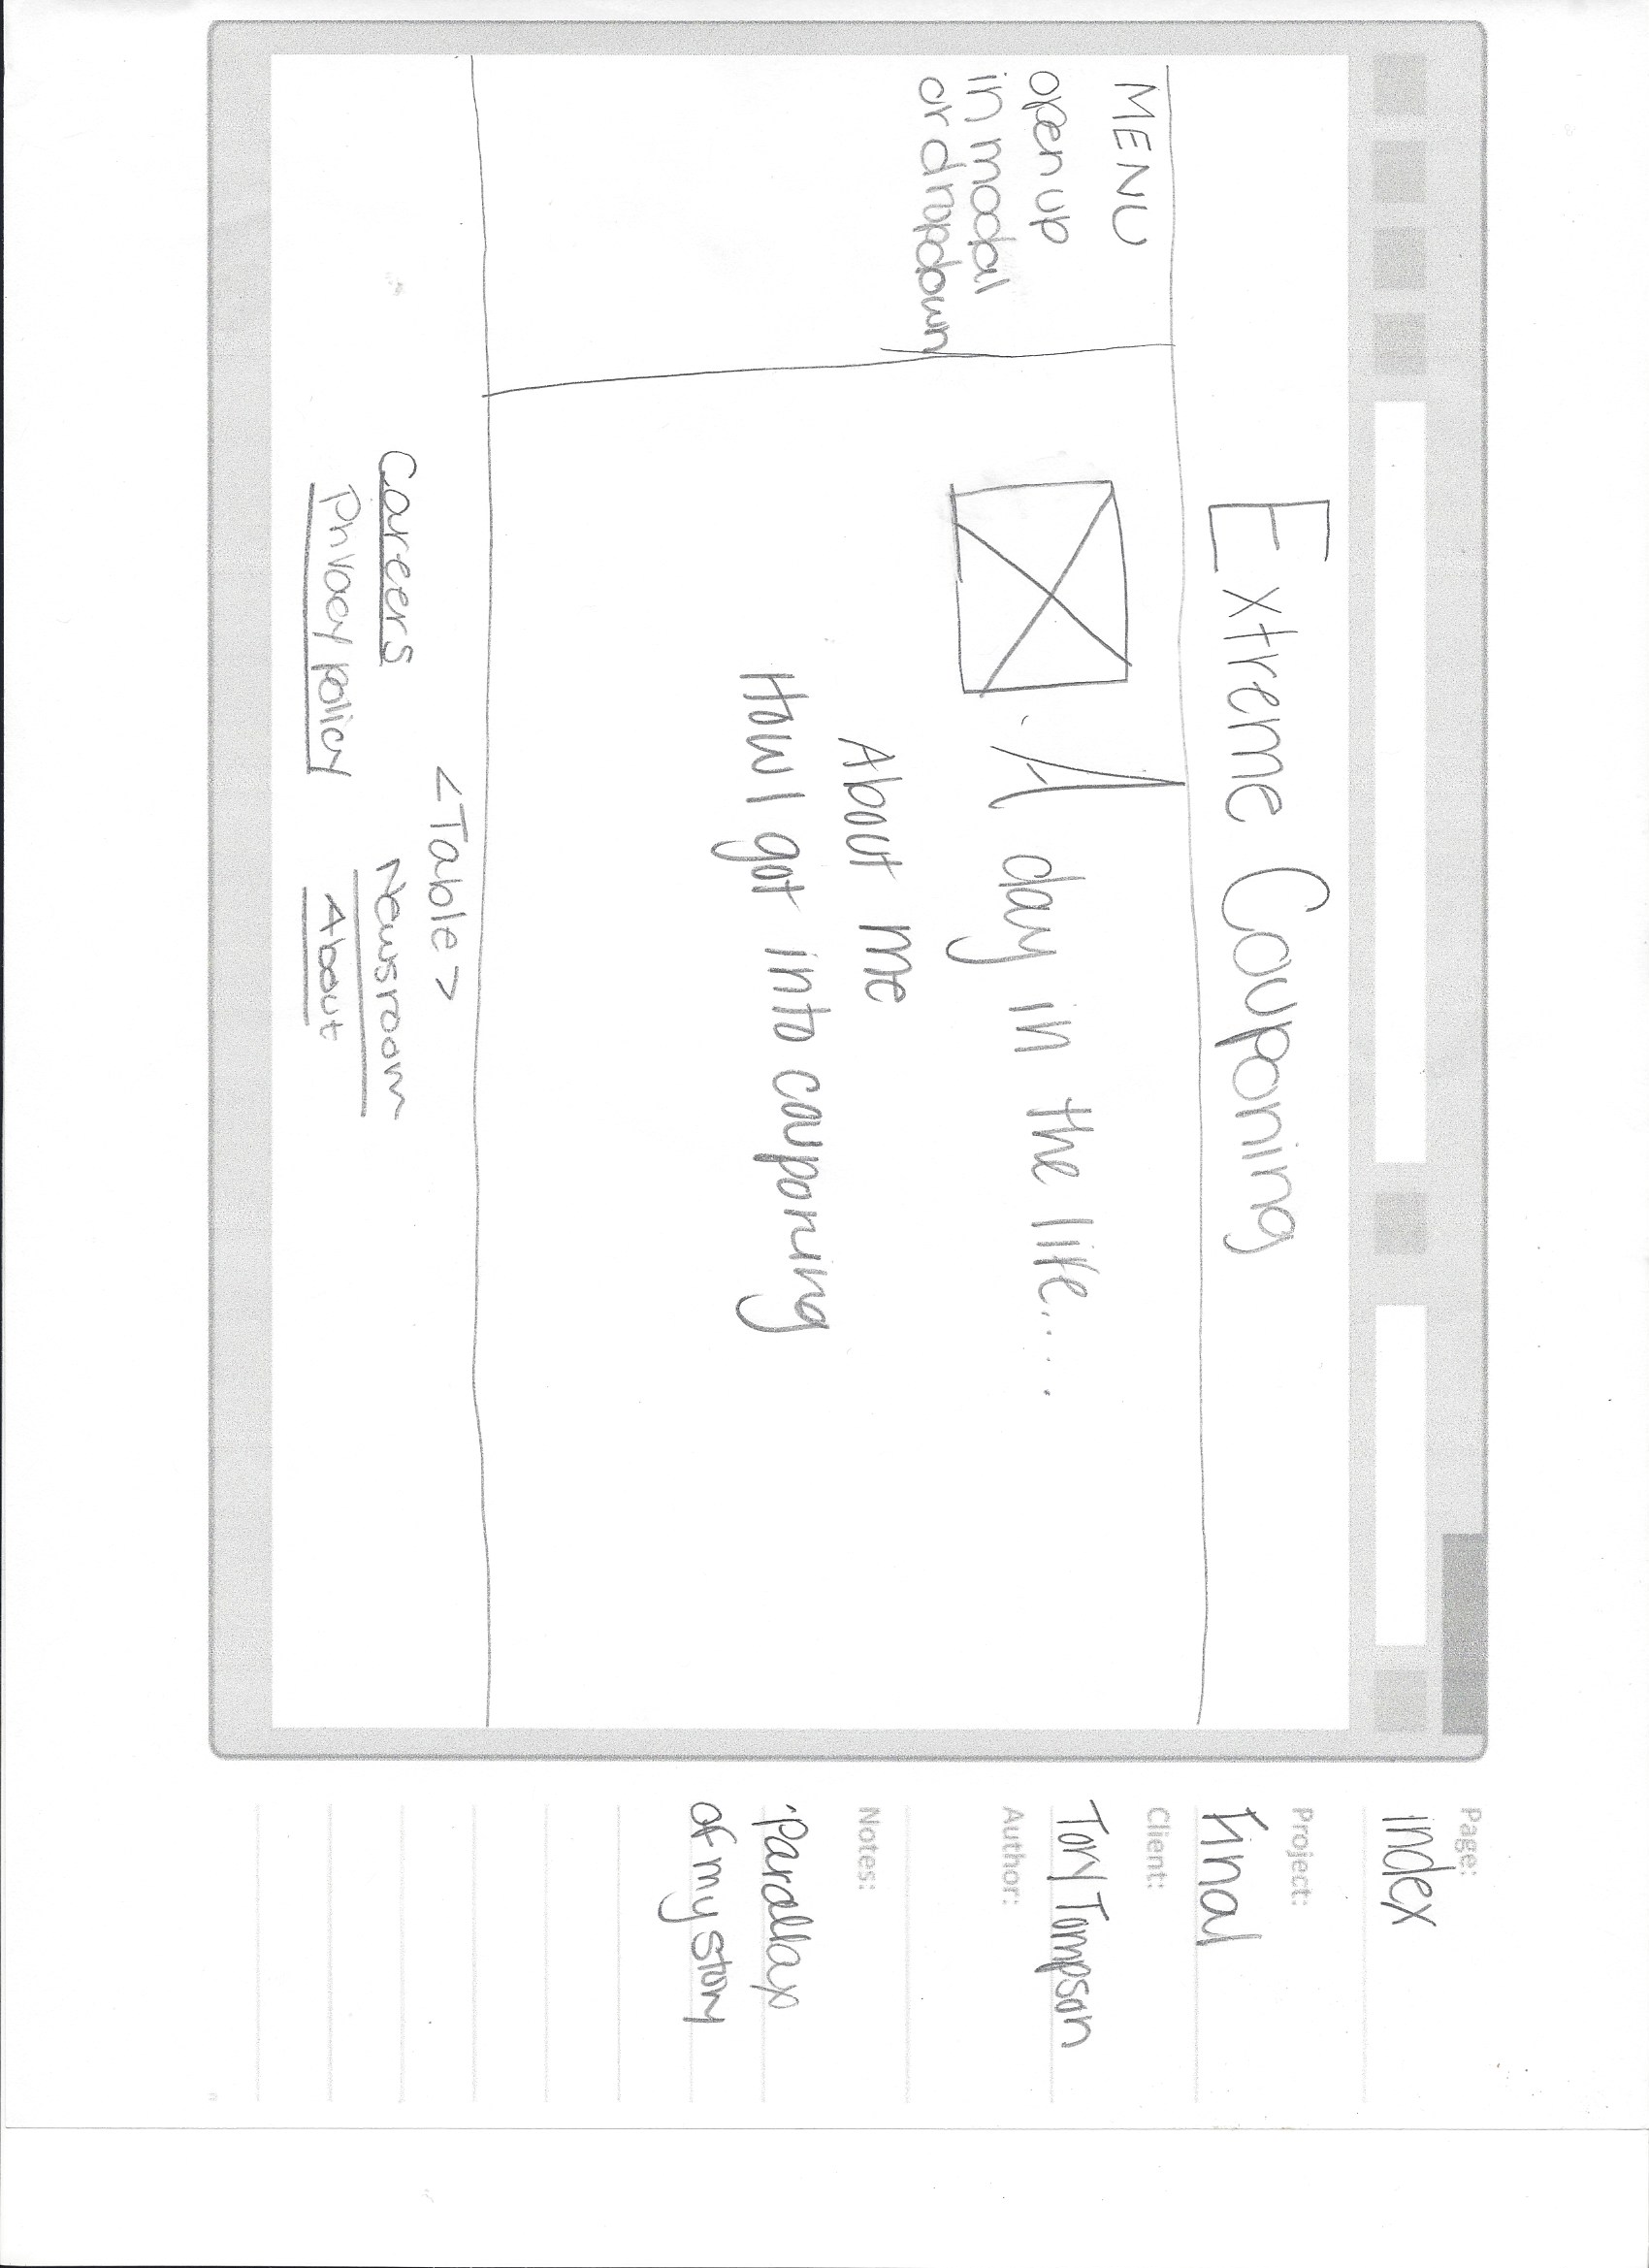 Extreme Couponing
MENU
open up
in modal
or dropdown
A day in the life.....
About me
How I got into couponing
<Table>
Careers
Newsroom
Privacy policy
About
Page:
index
Project:
Final
Client:
Tory Tompson
Author:
Notes:
·parallax
of my story